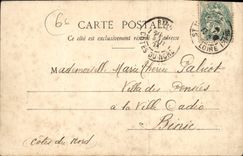 6c
CARTE POSTALE
Ce côté est exclusivement réservé
BINIC
CÔTES DU NORD
LOIRE INF
Mademoiselle Marie Thérèse
Villa des Pensées
à la Ville Cadio
Binic
Côtes du Nord